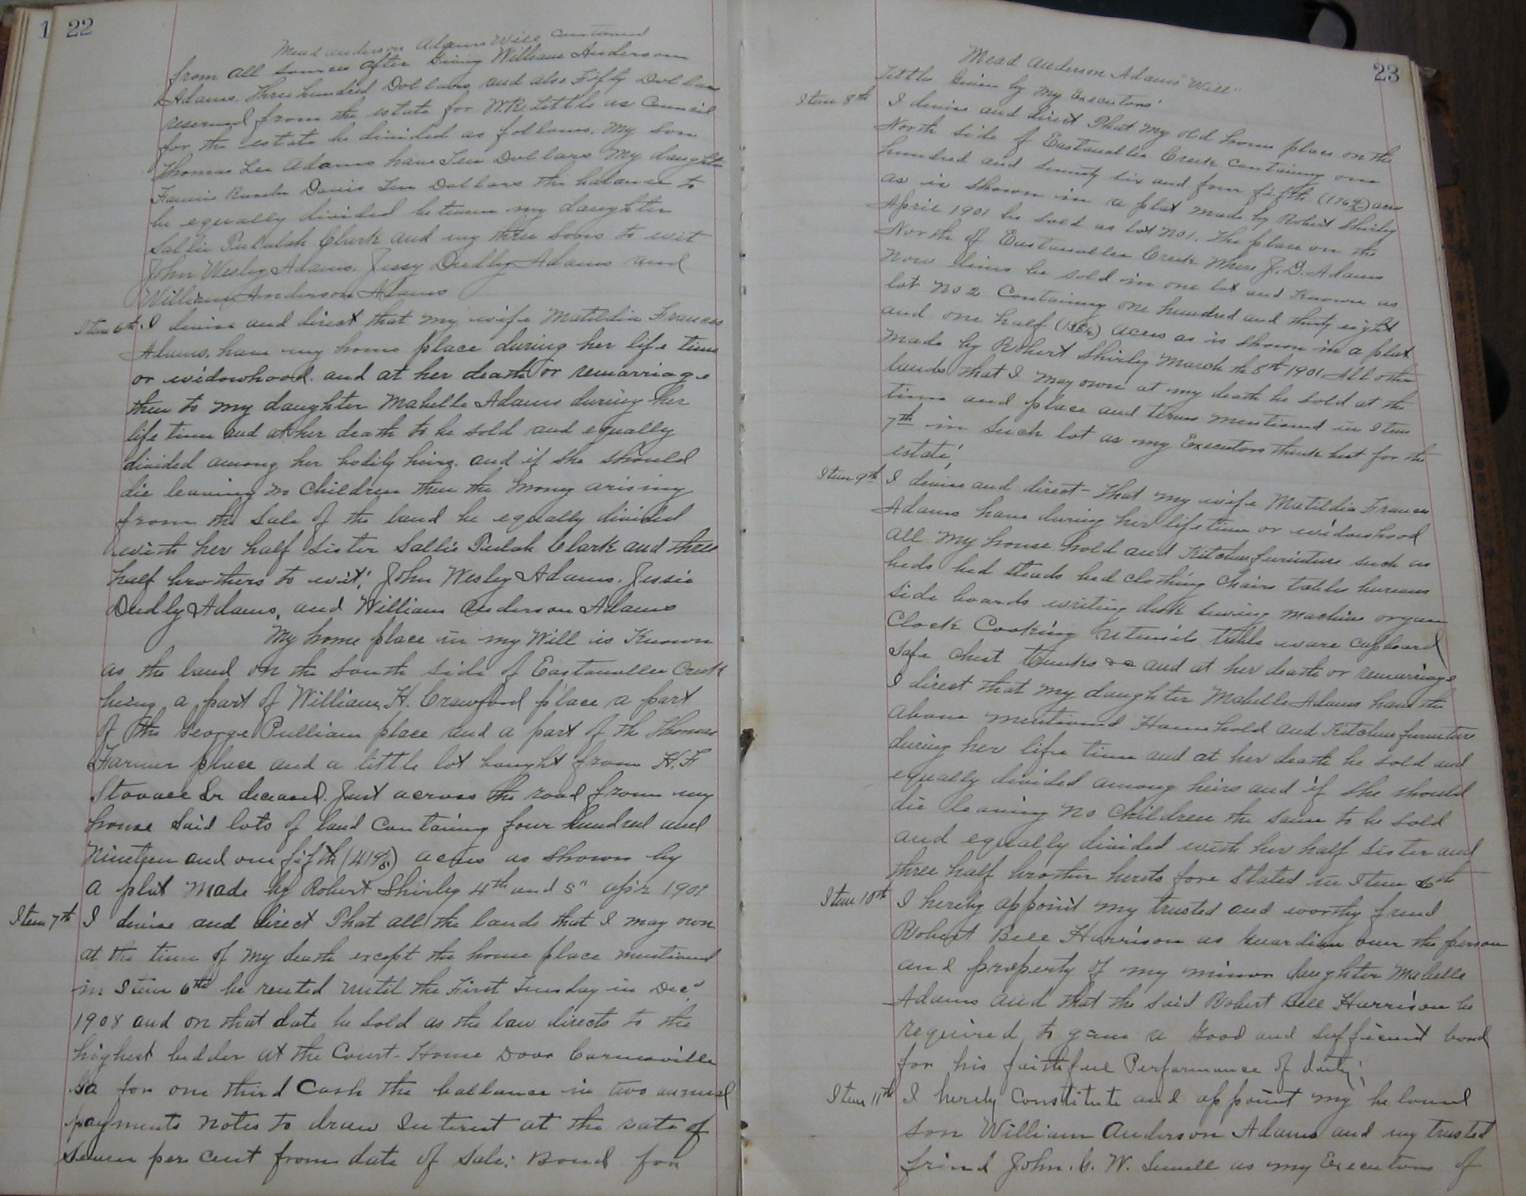 1 22
Mead Anderson Adams Will Continued
from all sources after Giving William Anderson
Adams. Three hundred Dollars, and also Fifty Dollars
reserved from the estate for W.R. Little as Council
for the estate be divided as follows. My Son
Thomas Lee Adams have Ten Dollars My daughter
Francis Davis Ten Dollars the balance to
be equally divided between my daughter
Sallie Clark and my three Sons to wit
John Wesley Adams. Jessy Dudley Adams and
William Anderson Adams
Item 6th. I devise and direct that my wife Matildia Frances
Adams. have my home place during her life time
or widowhood. and at her death or remarriage
then to my daughter Mabelle Adams during her
life time and at her death to be sold and equally
divided among her bodily heirs. and if she should
die leaving no Children then the Mony arising
from the Sale of the land be equally divided
with her half Sister Sallie Clark and three
half brothers to wit; John Wesley Adams. Jessie
Dudly Adams, and William Anderson Adams
My home place in my Will is Known
as the land on the South Side of Eastanollee Creek
being a part of William H. Crawford place a part
of the George Pulliam place and a part of the Thomas
Farmer place and a little lot bought from H. F
Stovall Sr deceased. Just across the road from my
house Said lots of land Containing four hundred and
Nineteen and one fifth (419 1/5) acres as shown by
a plat Made by Robert Shirley 4th and 5" apr 1901
Item 7th I devise and direct That all the lands that I may own
at the time of My death except the home place mentioned
in Item 6th be rented until the First Tuesday in Dec"
1908 and on that date be sold as the law directs to the
highest bidder at the Court-House Door Carnesville
Ga for one third Cash the ballance in two annual
payments Notes to draw Interest at the rate of
Seven per cent from date of Sale: Bond for
23
Mead Anderson Adams "Will"
Tittle Given by My Executors'
Item 8th I devise and direct That My old home place on the
North Side of Eastanollee Creek Containing one
hundred and Seventy Six and four fifth (176 4/5) acres
as is Shown in a plat Made by Robert Shirley
April 1901 be Sold as lot No 1. The place on the
North of Eastanollee Creek Where J. D. Adams
Now lives be sold in one lot and Known as
lot No 2 Containing one hundred and thirty eight
and one half (138 1/2) acres as is shown in a plat
Made by Robert Shirley March the 8th 1901 All other
lands that I may own at my death be sold at the
time and place and terms mentioned in Item
7th in Such lot as my Executors think best for the
estate,
Item 9th I devise and direct- That my wife Matildia Frances
Adams have during her lifetime or widowhood
all My house hold and Kitchen furniture such as
beds bed steads bed clothing Chairs tables bureaus
Side boards writing desk Sewing Machine organ
Clock Cooking utensils table ware cupboard
Safe Chest trunks &c and at her death or remarriage
I direct that my daughter Mabelle Adams have the
above mentioned Household and Kitchen furniture
during her life time and at her death be sold and
equally divided among heirs and if she should
die leaving No Children the Same to be Sold
and equally divided with her half Sister and
three half brother hereto fore Stated in Item 6th
Item 10th I hereby appoint my trusted and worthy frend
Robert Bell Harrison as Guardian over the person
and property of my minor daughter Mabelle
Adams and that the Said Robert Bell Harrison be
required to give a Good and Sufficient bond
for his faithful Performance of duty;
Item 11th I hereby Constitute and appoint my beloved
Son William Anderson Adams and my trusted
frind John. C. W. Sewell as my Executors of